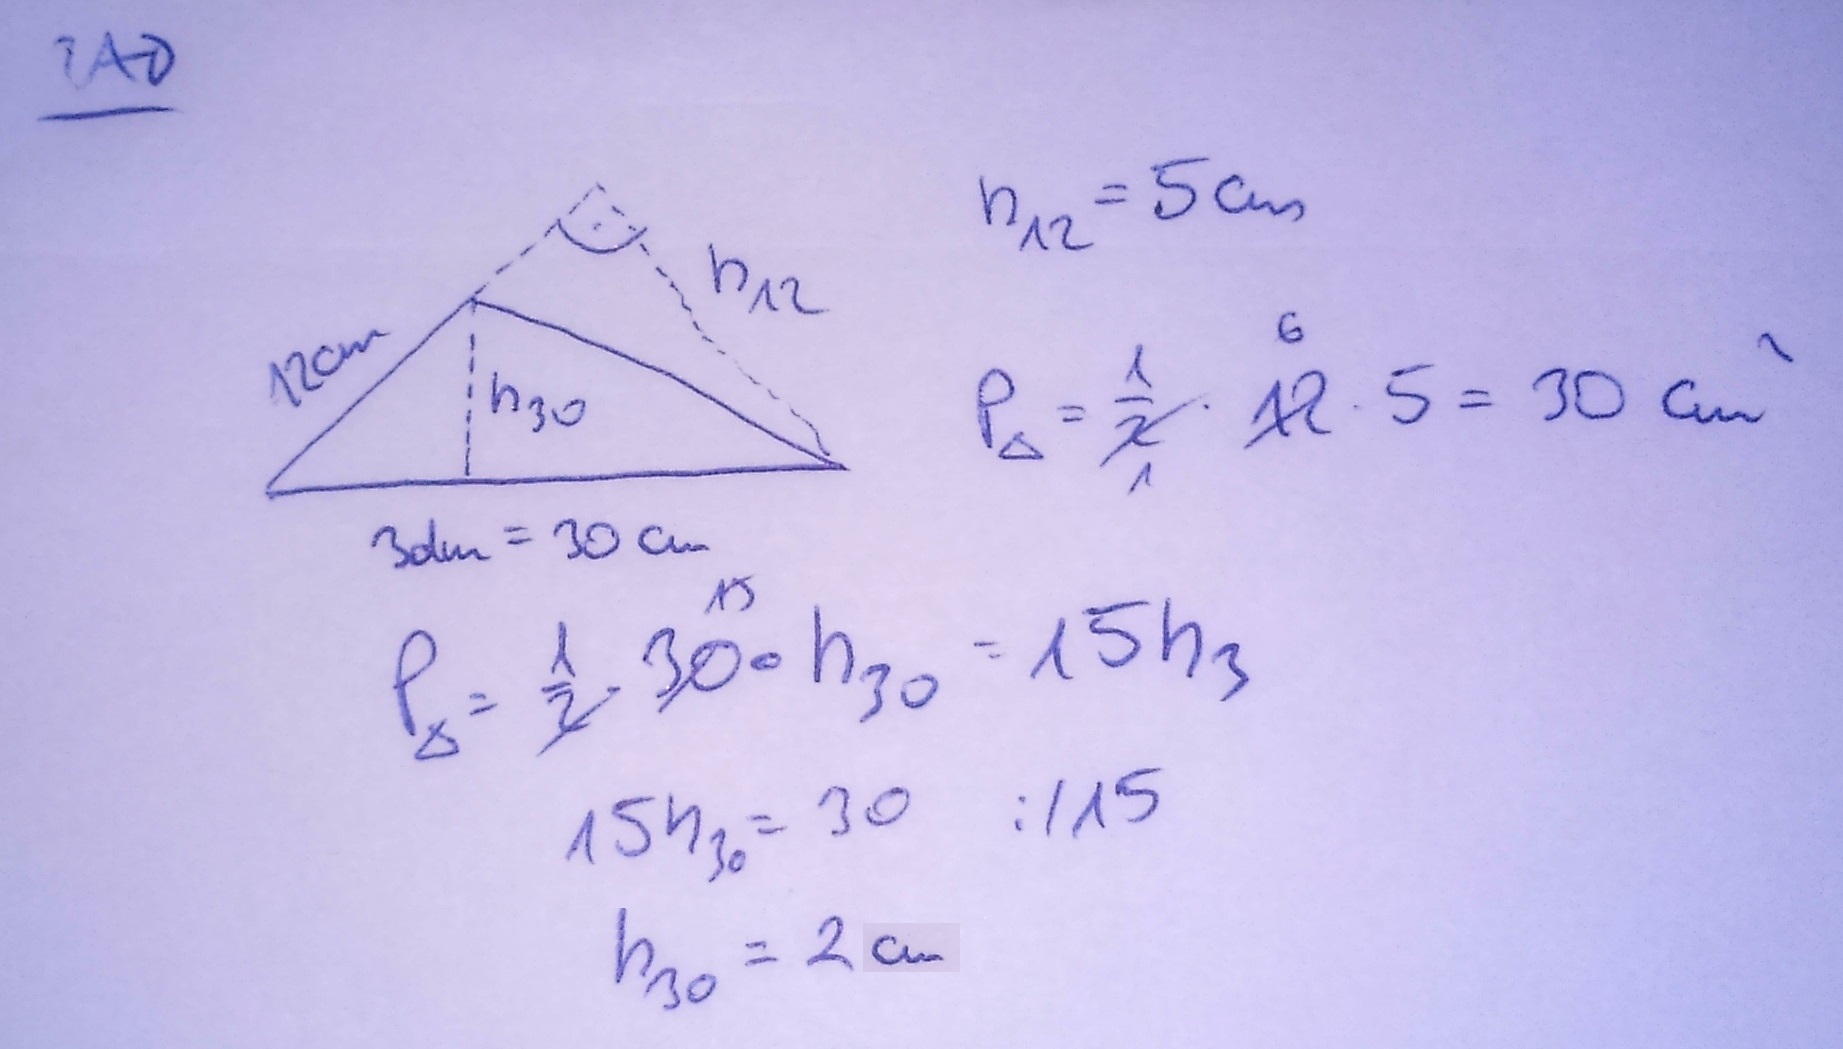 ZAD
12cm
h₃₀
h₁₂
3dm = 30 cm
h₁₂ = 5 cm
P△ = 1/2 · 12 · 5 = 30 cm²
6
1
15
P△ = 1/2 · 30 · h₃₀ = 15h₃
15h₃₀ = 30 :/15
h₃₀ = 2 cm